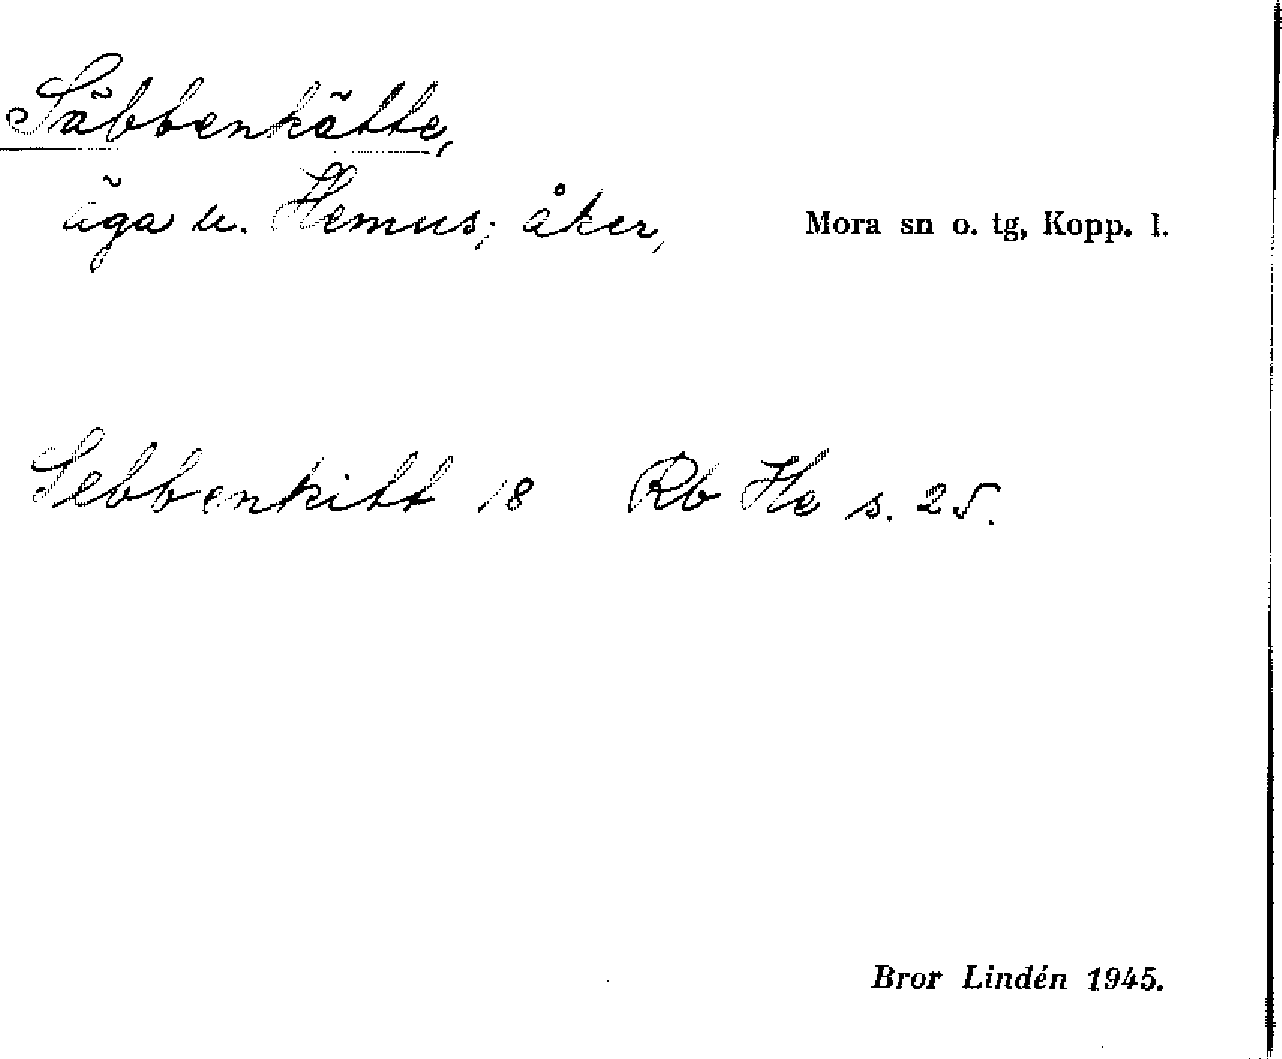 Säbbenkätte,
äga u. Hemus; åker, Mora sn o. tg, Kopp. l.
Sebbenkitt 18 Rb He s. 25.
Bror Lindén 1945.